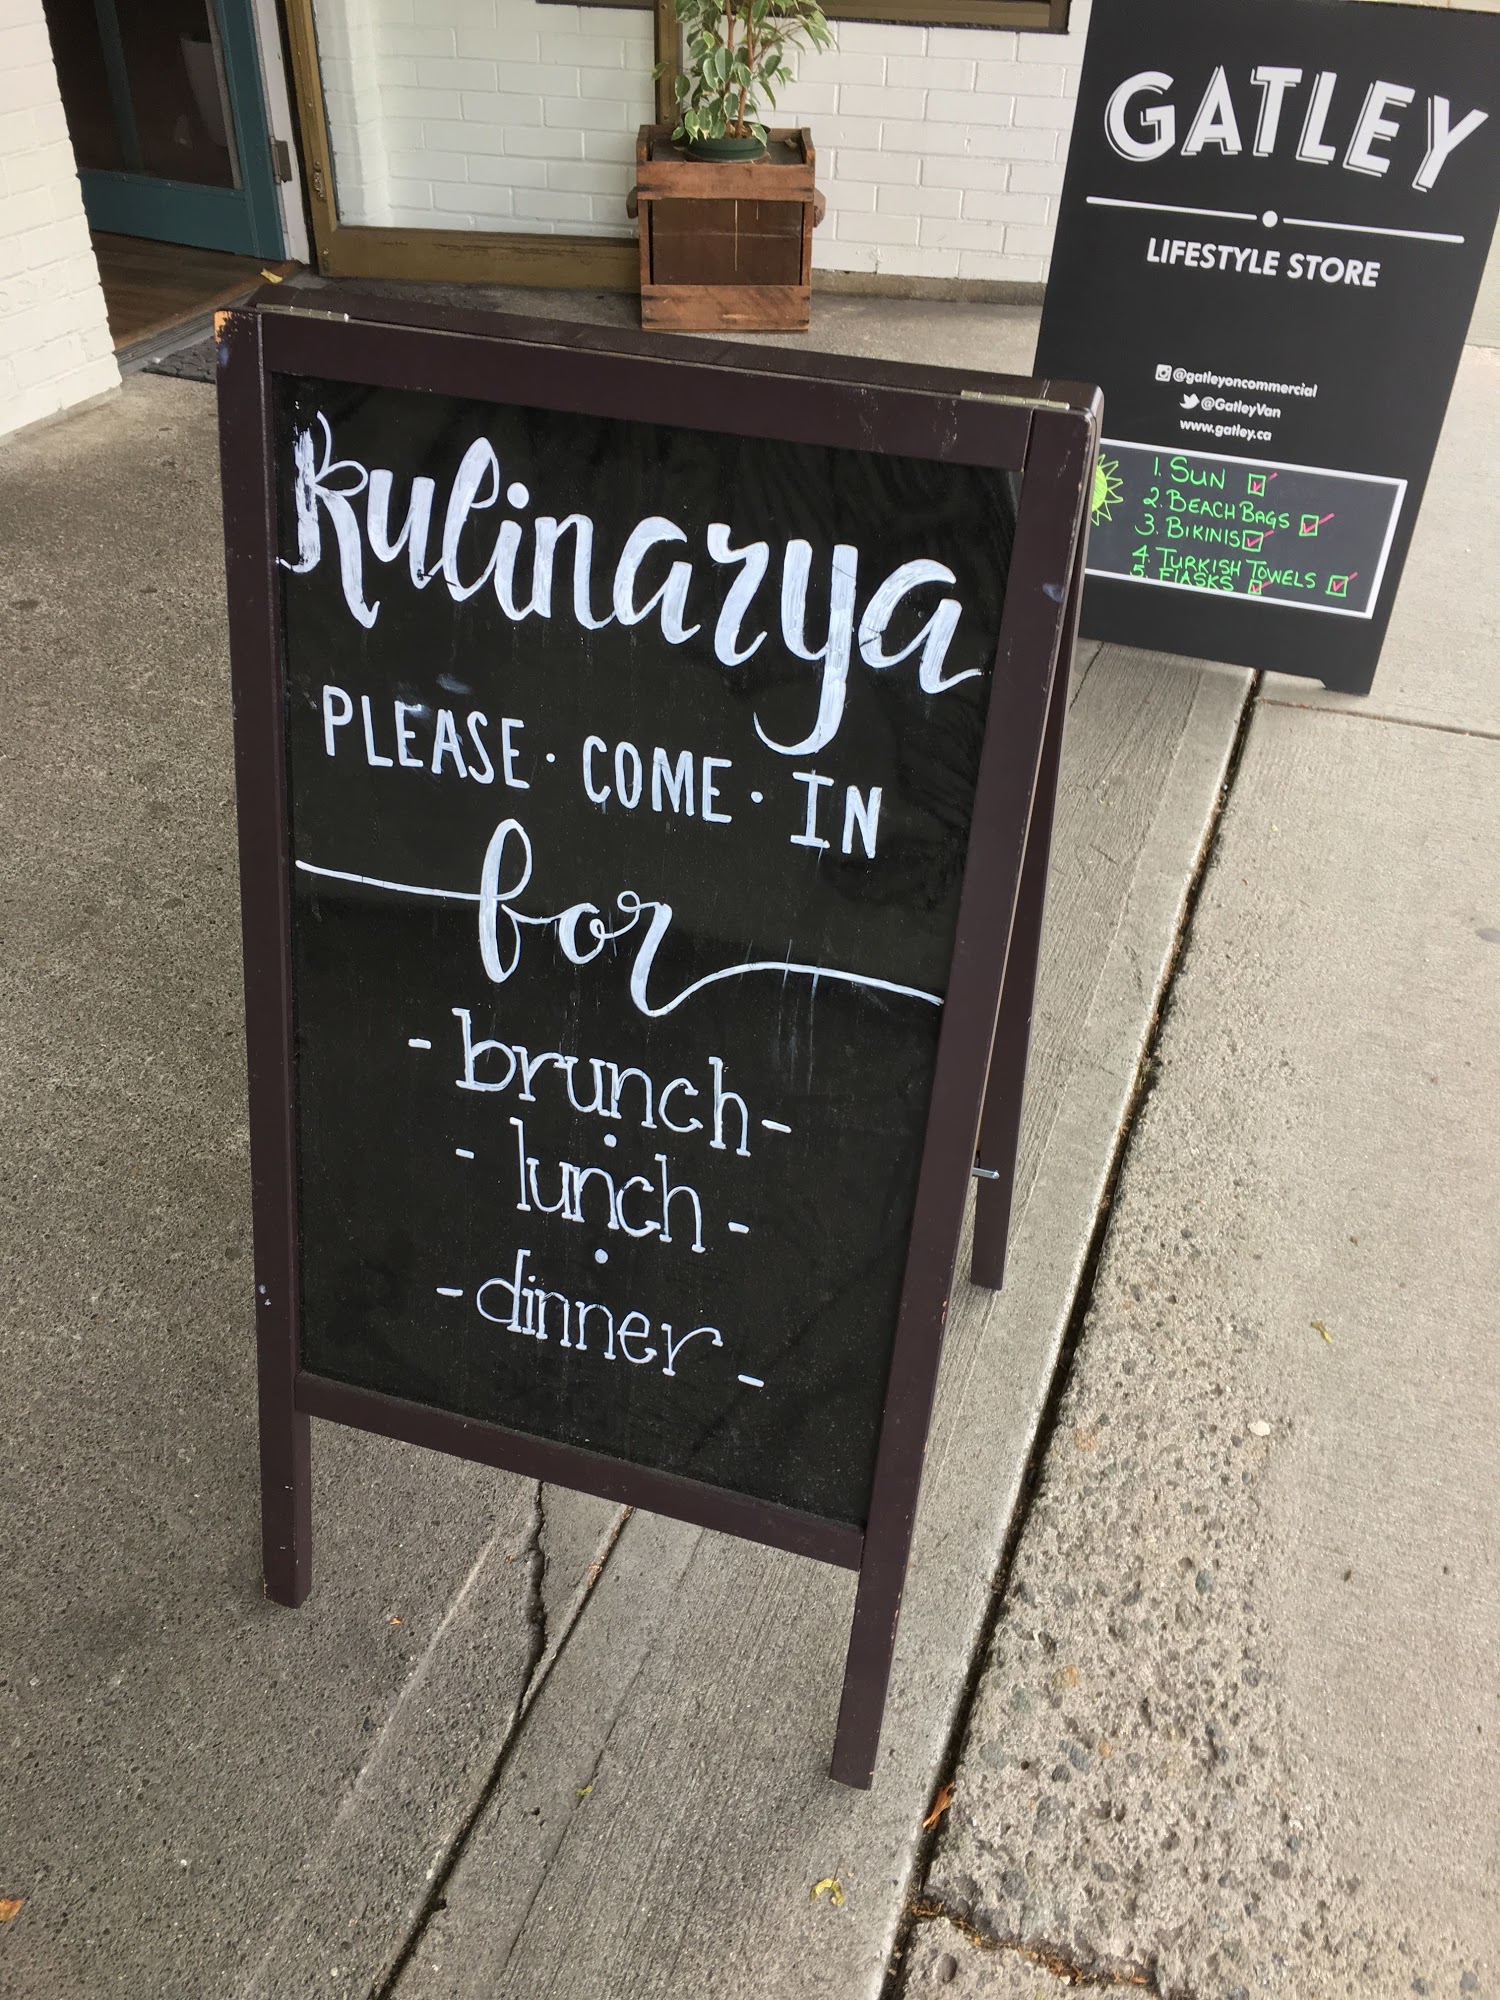 Kulinarya
PLEASE · COME · IN
for
- brunch -
- lunch -
- dinner -
GATLEY
LIFESTYLE STORE
@gatleyoncommercial
@GatleyVan
www.gatley.ca
1. SUN
2. BEACH BAGS
3. BIKINIS
4. TURKISH TOWELS
5. FLASKS